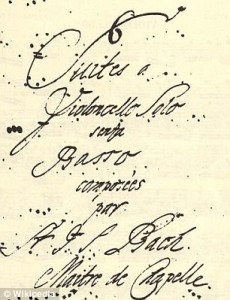 6
Suites a
Violoncello Solo
senza
Basso
composées
par
S.r J. S. Bach.
Maitre de Chapelle.
© Wikipedia